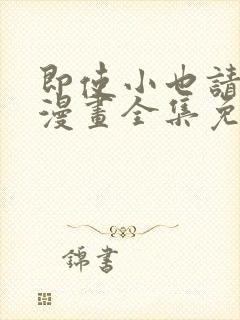 即使小也請
漫畫全集免
錦書